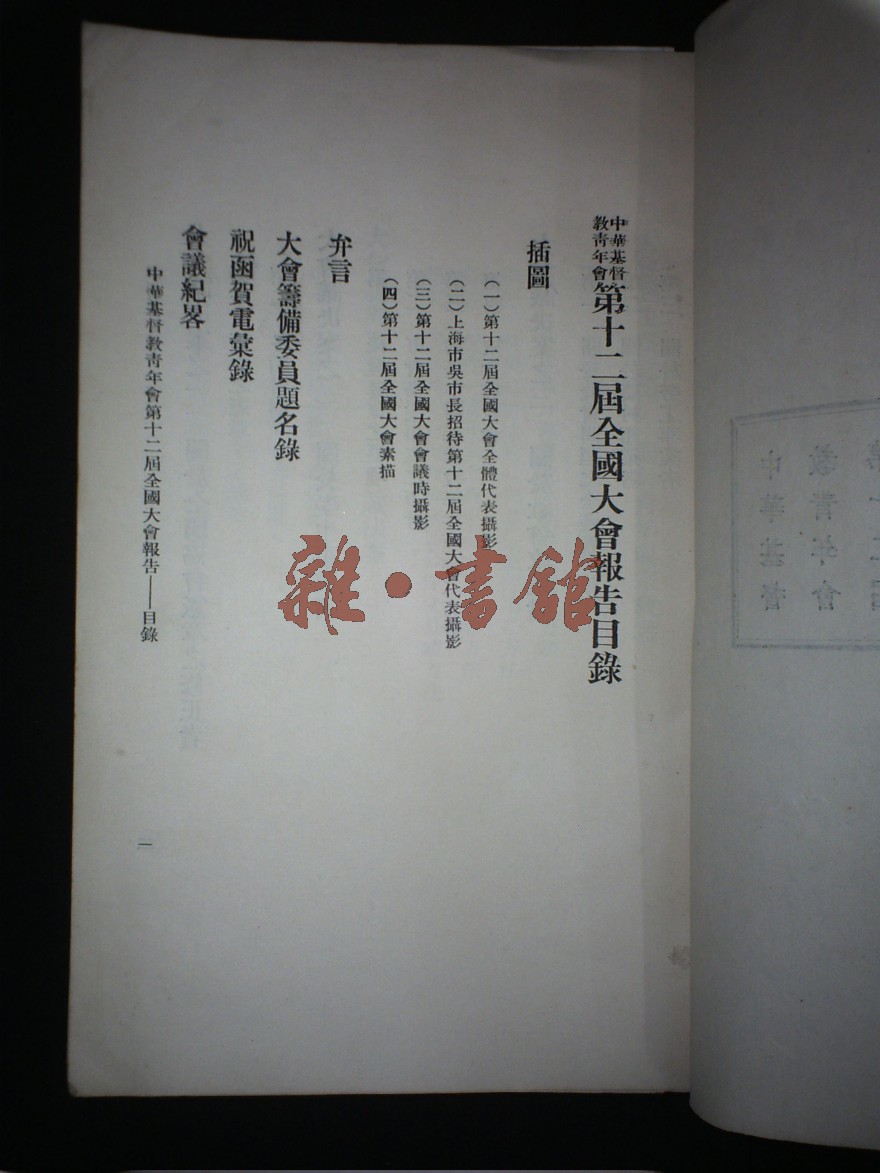 中華基督教青年會第十二屆全國大會報告目錄
插圖
（一）第十二屆全國大會全體代表攝影
（二）上海市吳市長招待第十二屆全國大會代表攝影
（三）第十二屆全國大會會議時攝影
（四）第十二屆全國大會素描
弁言
大會籌備委員題名錄
祝函賀電彙錄
會議紀畧
中華基督教青年會第十二屆全國大會報告——目錄
一
雜·書館